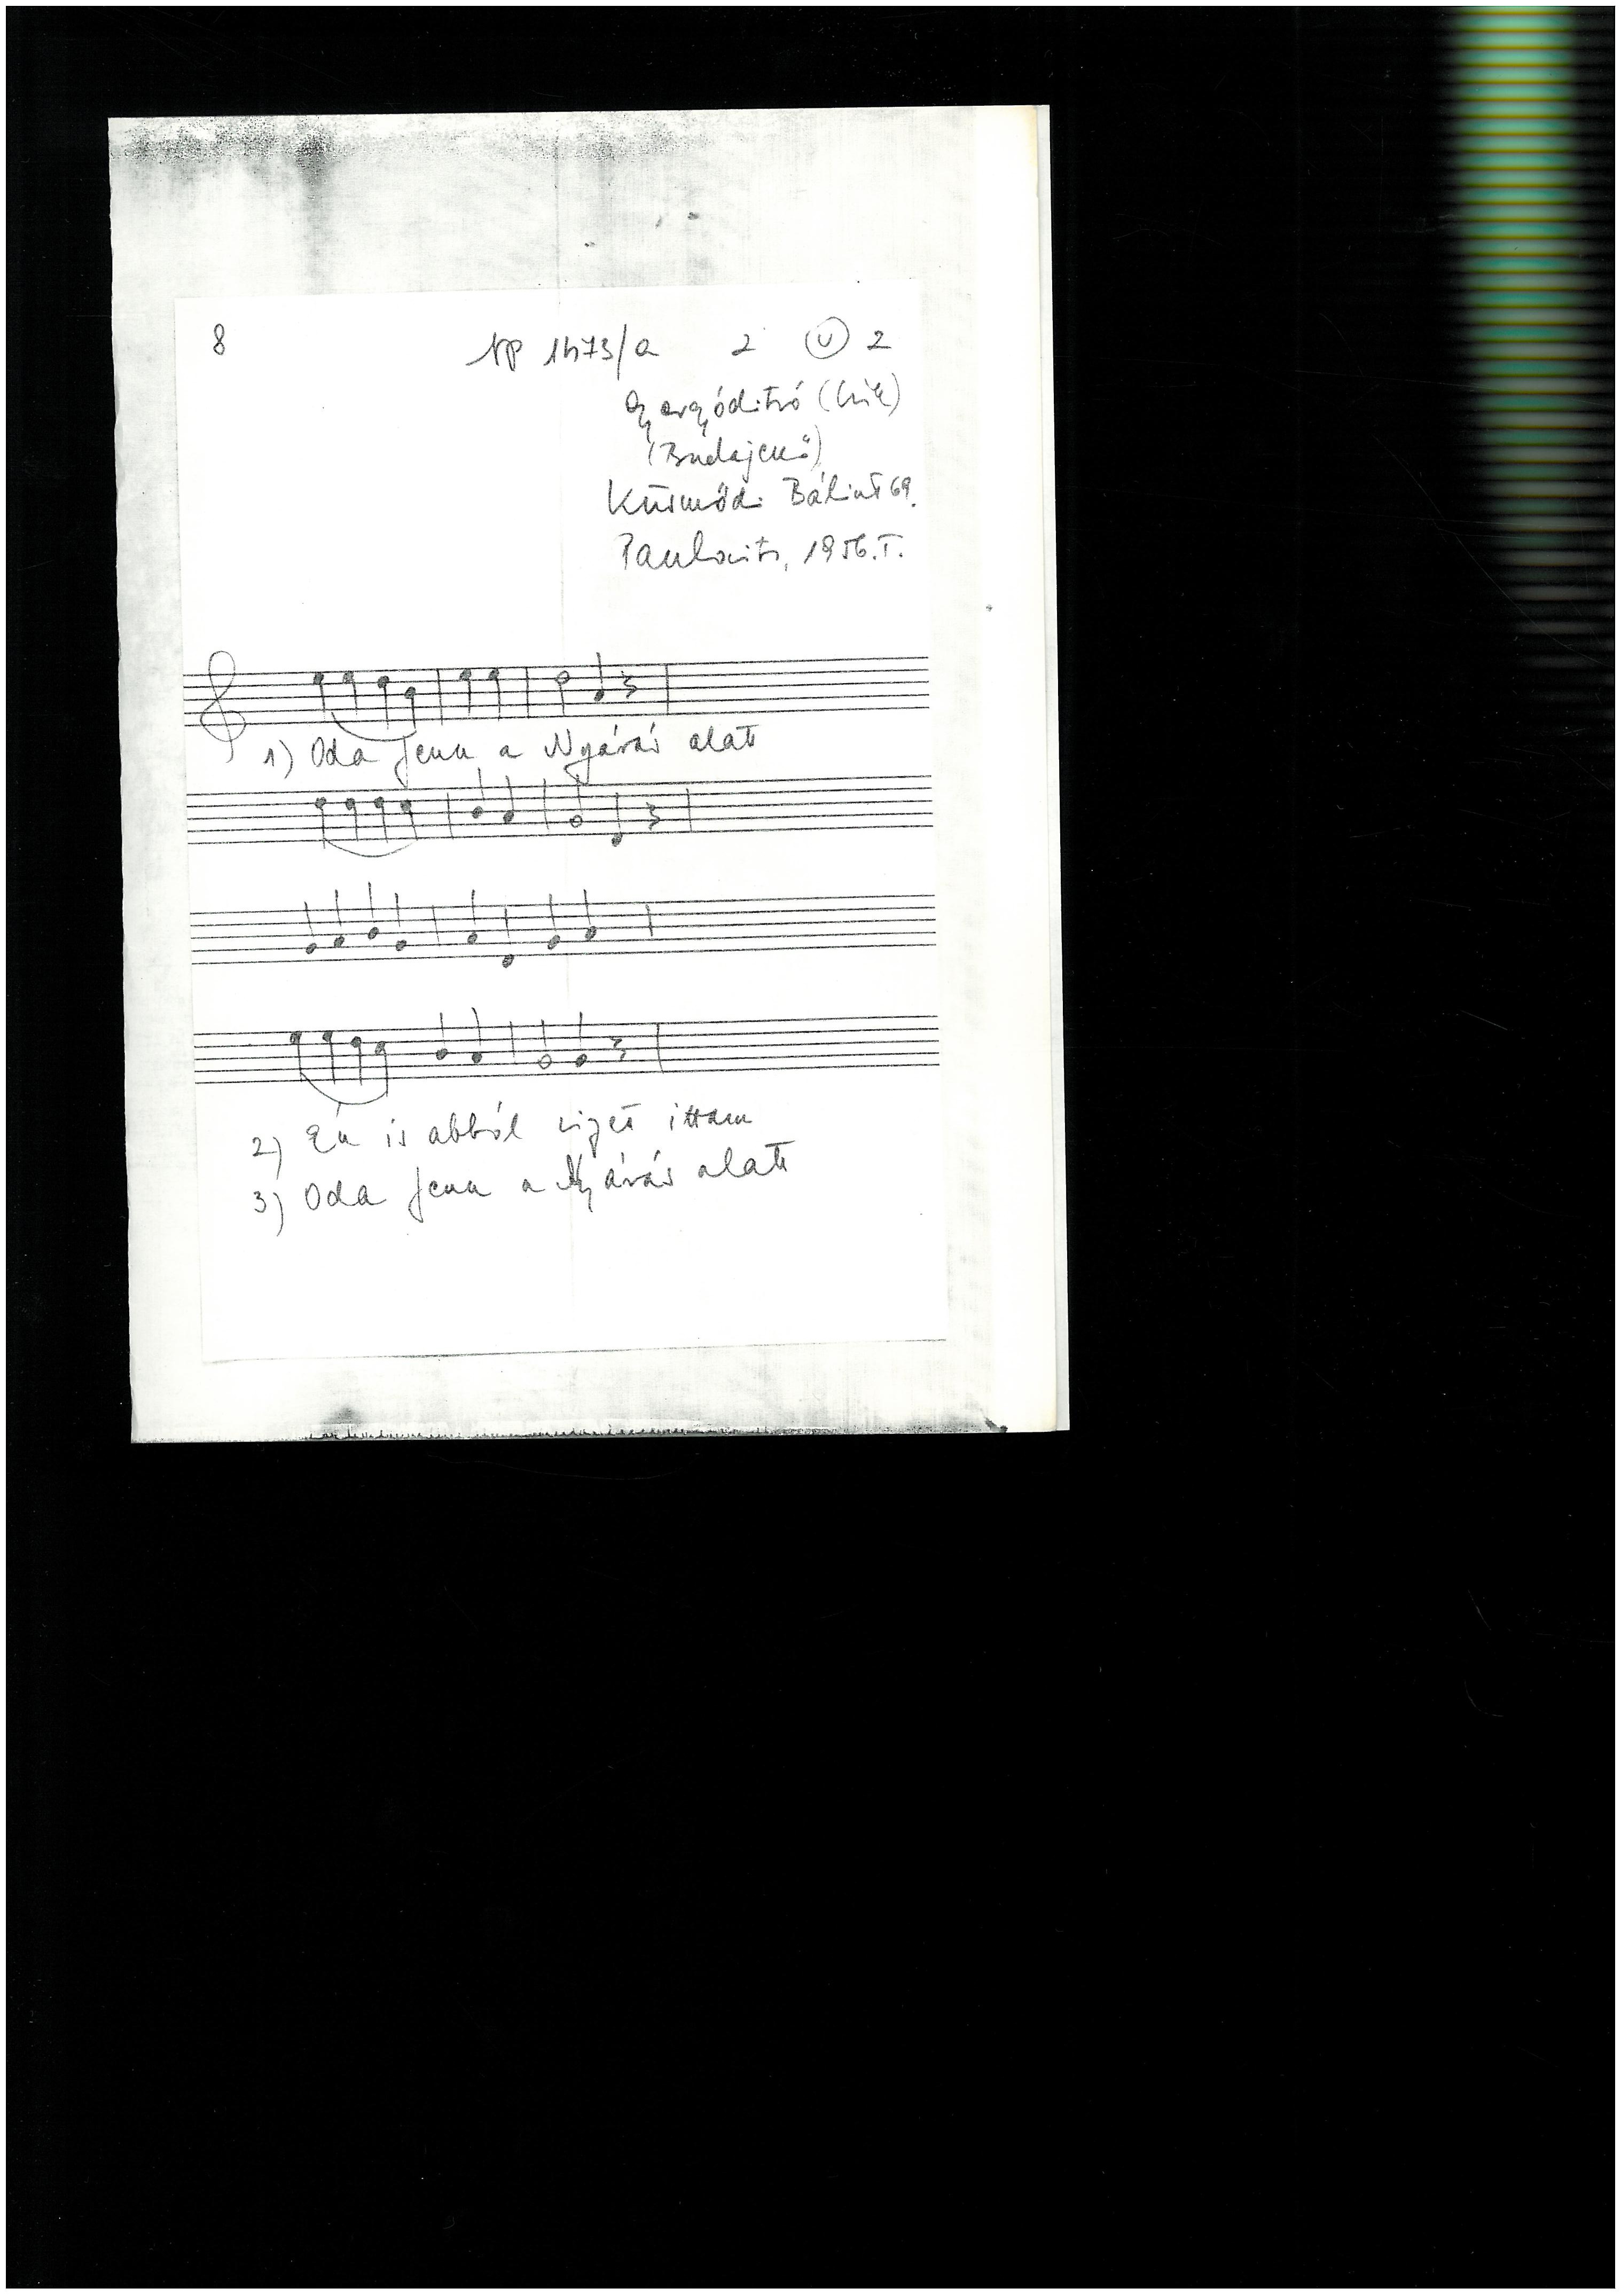 8 Np 1473/a 2 (V) 2
Gyergyóditró (Csík)
(Budajenő)
Küsmődi Bálint 69.
Paulovits, 1956. I.
1) Oda fenn a Nyárás alatt
2) Én is abból vizet ittam
3) Oda fenn a Nyárás alatt